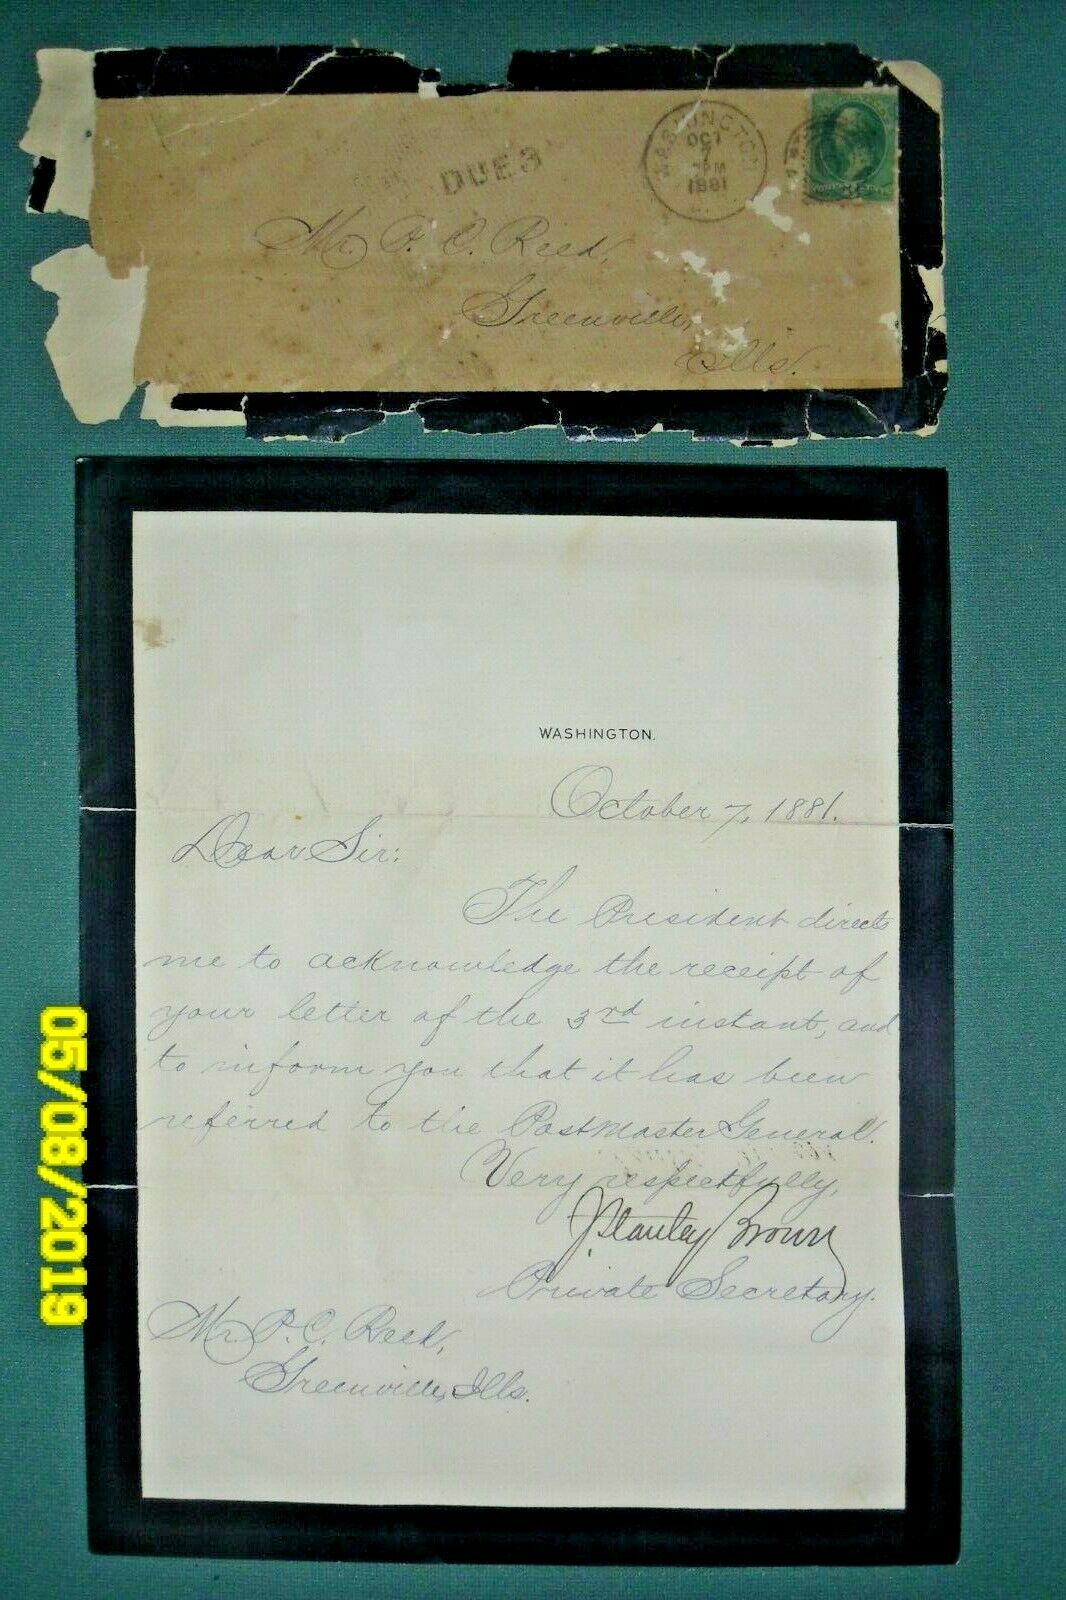 DUE 3
WASHINGTON
OCT
7
PM
1881
Mr. P. C. Reed,
Greenville,
Ills.
WASHINGTON.
October 7, 1881.
Dear Sir:
The President directs
me to acknowledge the receipt of
your letter of the 3rd instant, and
to inform you that it has been
referred to the Postmaster General.
Very respectfully,
J. Stanley Brown
Private Secretary.
Mr. P. C. Reed,
Greenville, Ills.
05/08/2019